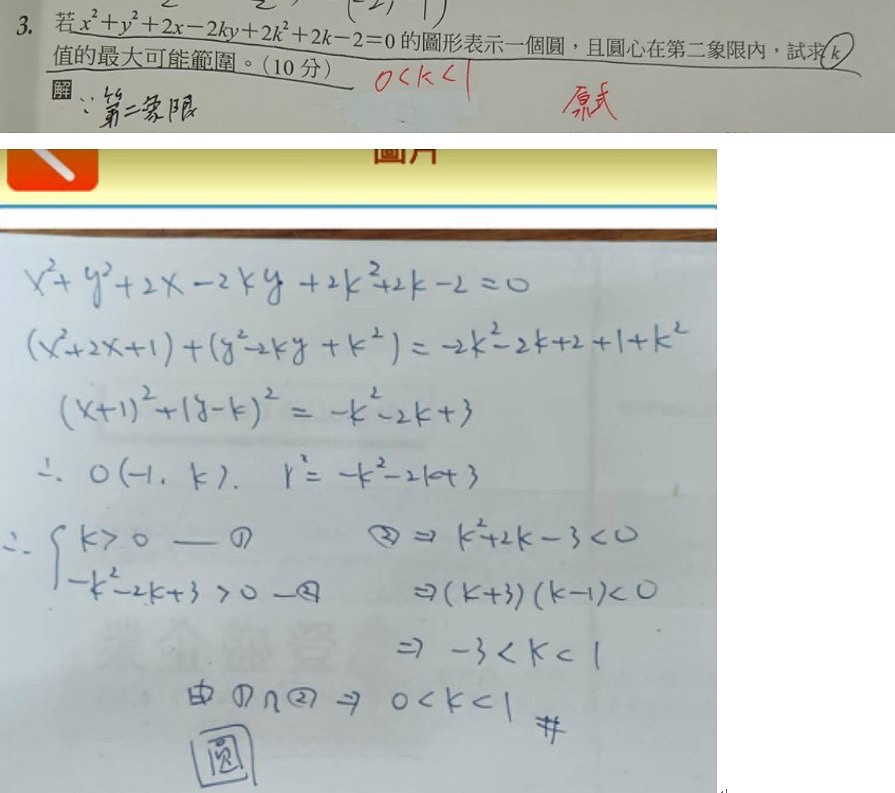 3. 若 x²+y²+2x−2ky+2k²+2k−2=0 的圖形表示一個圓，且圓心在第二象限內，試求 k
值的最大可能範圍。（10 分） 0<k<1
解 ∵ 第二象限 原式
圖片
x²+y²+2x−2ky+2k²+2k−2=0
(x²+2x+1)+(y²−2ky+k²)=−2k²−2k+2+1+k²
(x+1)²+(y−k)²=−k²−2k+3
∴ O(−1, k). r²=−k²−2k+3
∴ { k>0 —① ② ⇒ k²+2k−3<0
−k²−2k+3>0 —② ⇒(k+3)(k−1)<0
⇒ −3<k<1
由 ①∩② ⇒ 0<k<1 #
圓